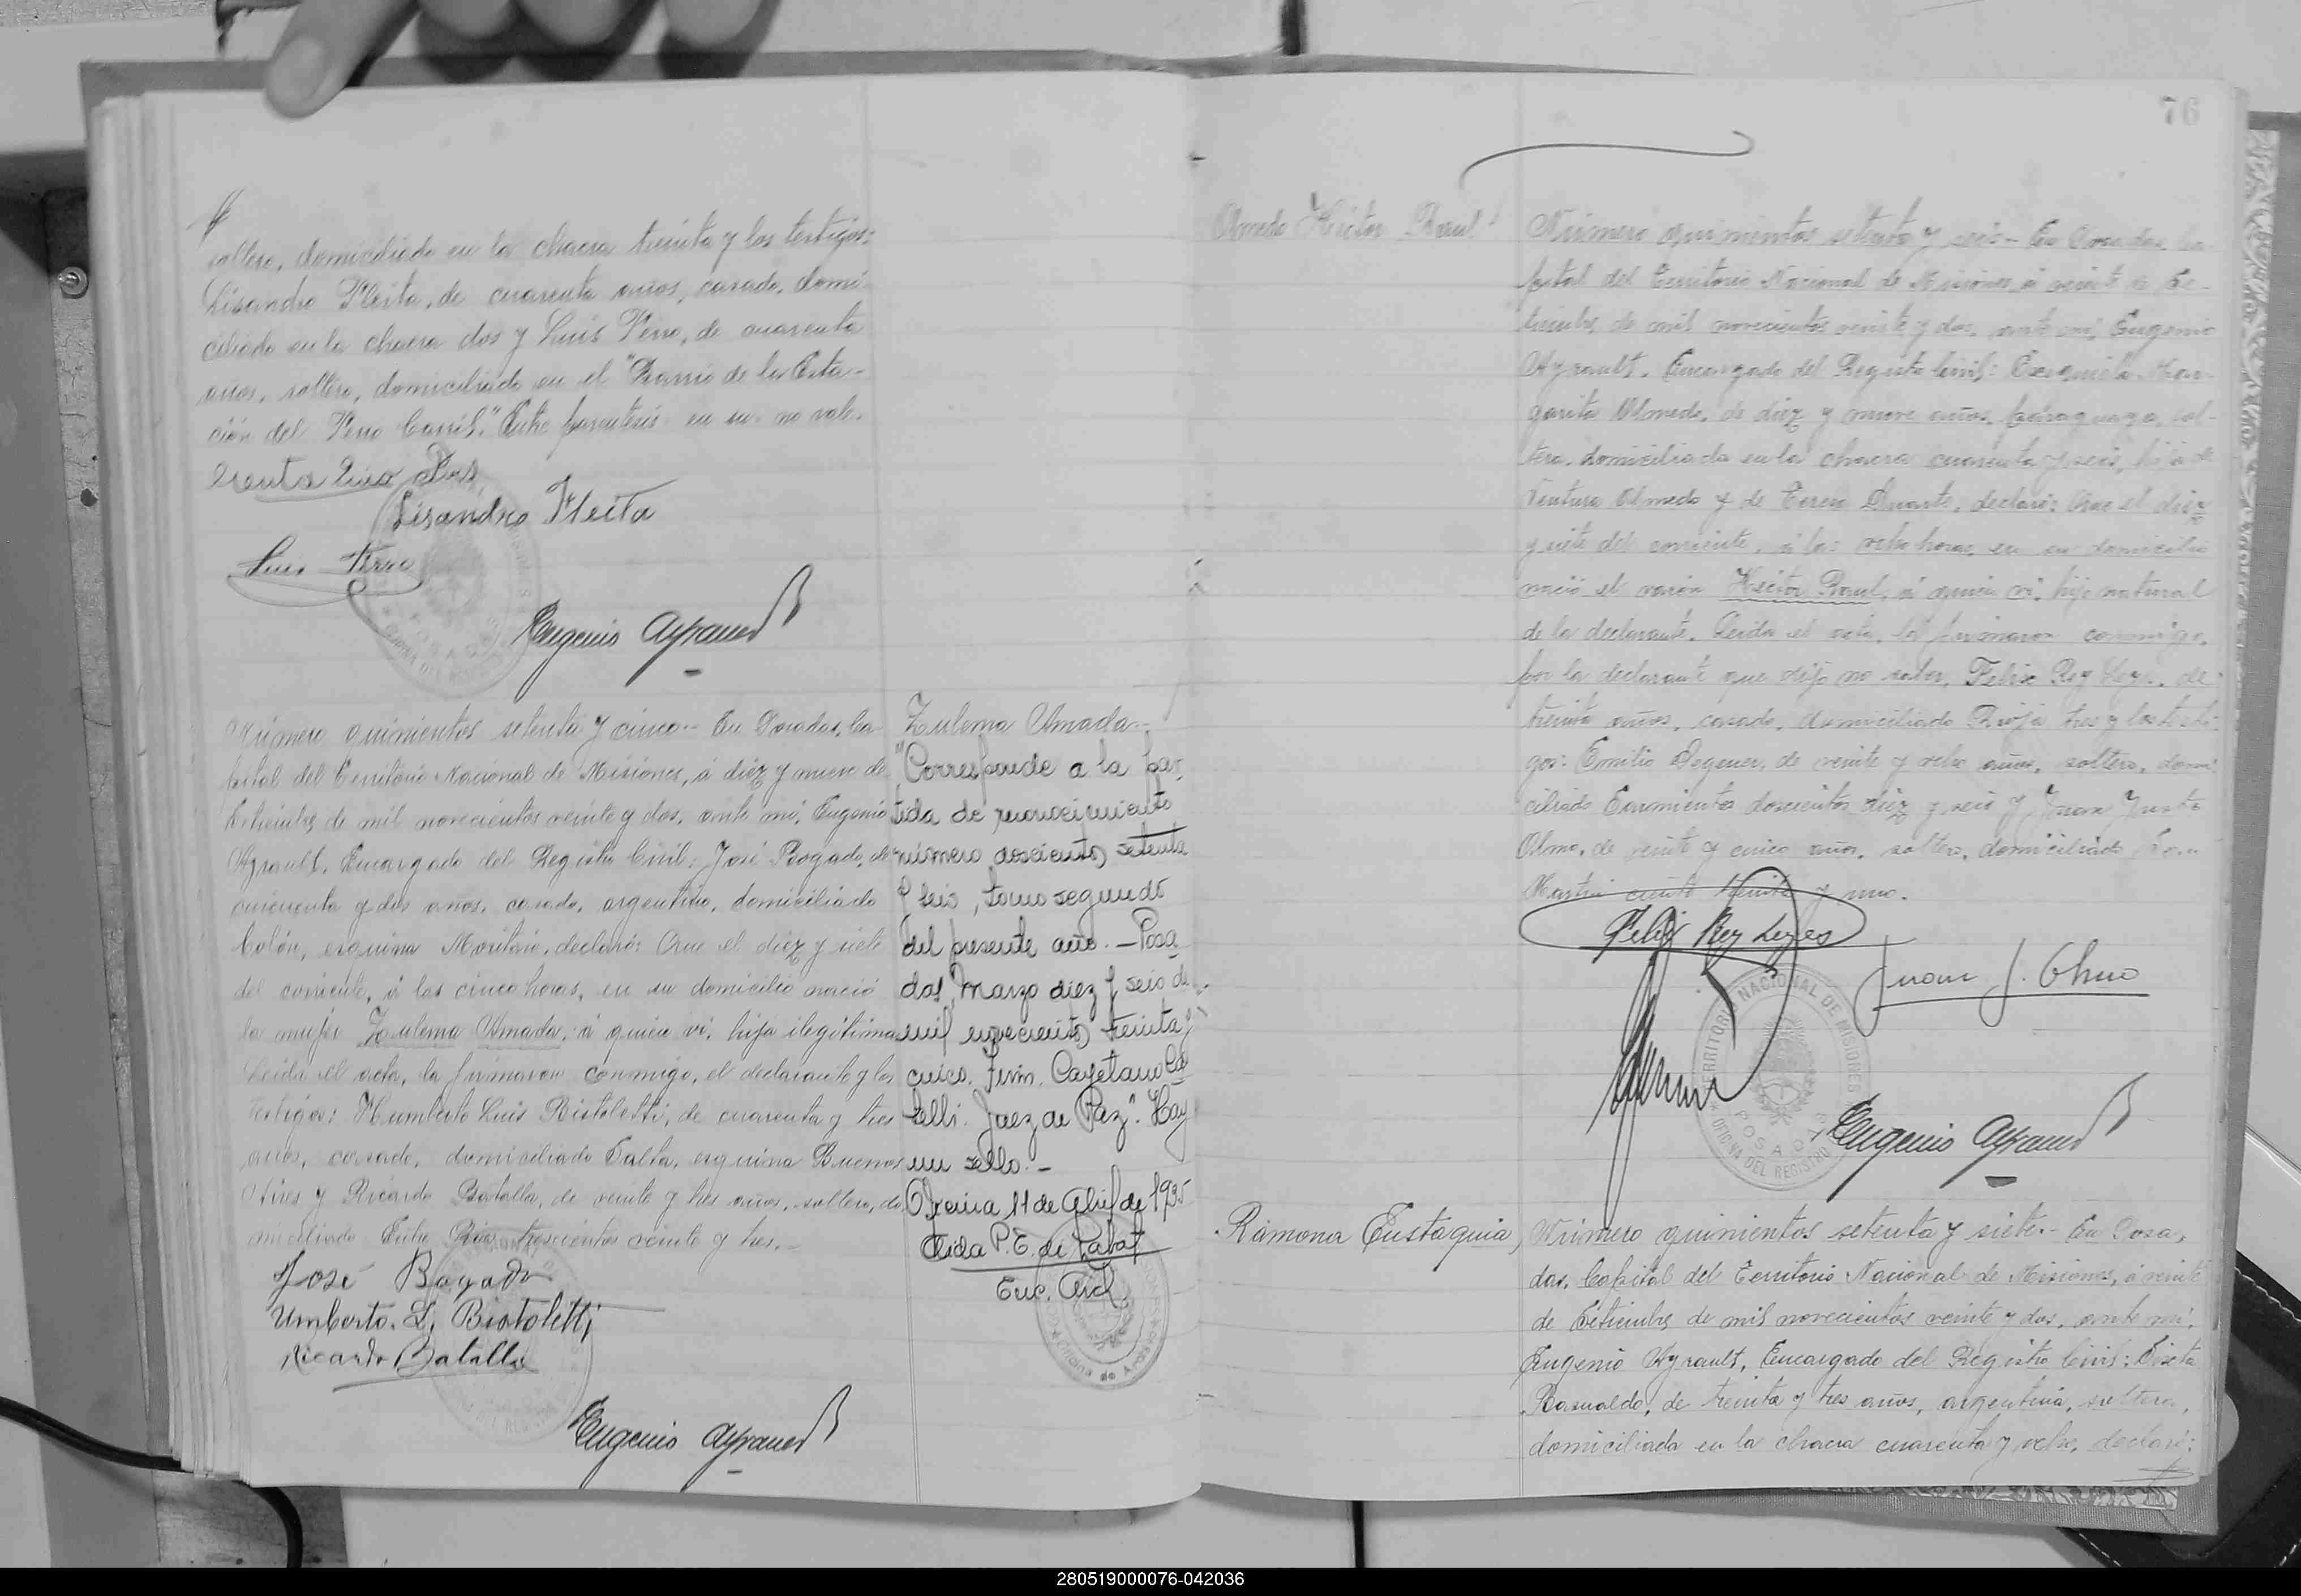 soltero, domiciliado en la chacra treinta y los testigos:
Lisandro Fleita, de cuarenta años, casado, domi-
ciliado en la chacra dos y Luis Ferro, de cuarenta
años, soltero, domiciliado en el "Barrio de la Esta-
ción del Ferro Carril." Entre parentesis en su no vale.
Lisandro Fleita
Luis Ferro
Eugenio Ayrault
Número quinientos setenta y cinco.- En Posadas, Ca-
pital del Territorio Nacional de Misiones, á diez y nueve de
Setiembre de mil novecientos veinte y dos, ante mí, Eugenio
Ayrault, Encargado del Registro Civil: José Bogado, de
cincuenta y dos años, casado, argentino, domiciliado
Colón, esquina declaró: Que el diez y siete
del corriente, á las cinco horas, en su domicilio nació
la mujer Zulema Amada, á quien vi, hija ilegítima
Leida el acta, la firmaron conmigo, el declarante y los
testigos: Humberto Luis Bistoletti, de cuarenta y tres
años, casado, domiciliado Salta, esquina Buenos
Aires y Ricardo Batalla, de veinte y tres años, soltero, do-
miciliado Entre Rios trescientos veinte y tres.-
José Bogado
Umberto. L. Bistoletti
Ricardo Batalla
Eugenio Ayrault
Zulema Amada.-
"Corresponde a la par-
tida de reconocimiento
número doscientos setenta
y seis, tomo segundo
del presente año. - Posa-
das, Marzo diez y seis de
mil novecientos treinta y
cinco. Firm. Cayetano Ca
telli. Juez de Paz". Hay
un sello.-
Oficina 11 de Abril de 1935
P. E. de
Enc. Arch.
76
Olmedo Hector Raul
Número quinientos setenta y seis - En Posadas, Ca-
pital del Territorio Nacional de Misiones, á veinte de Se-
tiembre de mil novecientos veinte y dos, ante mí, Eugenio
Ayrault, Encargado del Registro Civil: Exequiela Mar-
garita Olmedo, de diez y nueve años, paraguaya, sol-
tera, domiciliada en la chacra cuarenta y seis, hija de
Ventura Olmedo y de Teresa Duarte, declaró: Que el diez
y siete del corriente, á las ocho horas, en su domicilio
nació el varón Hector Raul, á quien vi, hijo natural
de la declarante. Leida el acta, la firmaron conmigo,
por la declarante que dijo no saber, Felix Rey Leyes, de
treinta años, casado, domiciliado Rioja tres y los testi-
gos: Emilio Degener, de veinte y ocho años, soltero, domi-
ciliado Sarmiento doscientos diez y seis y Juan Justo
Olmo, de veinte y cinco años, soltero, domiciliado San
Martin ciento treinta y uno.
Felix Rey Leyes
Juan J. Olmo
TERRITORIO NACIONAL DE MISIONES
POSADAS
OFICINA DEL REGISTRO
Eugenio Ayrault
Ramona Eustaquia,
Número quinientos setenta y siete.- En Posa-
das, Capital del Territorio Nacional de Misiones, á veinte
de Setiembre de mil novecientos veinte y dos, ante mí,
Eugenio Ayrault, Encargado del Registro Civil:
Basualdo, de treinta y tres años, argentina, soltera,
domiciliada en la chacra cuarenta y ocho, declaró:
280519000076-042036